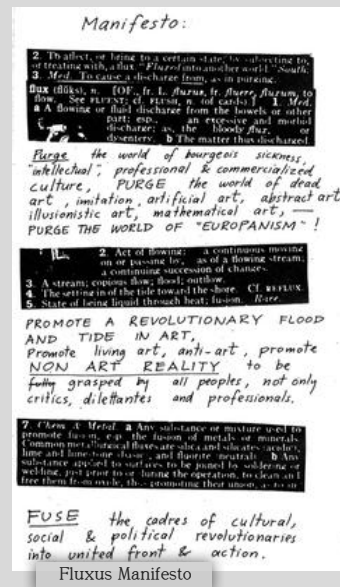 Manifesto:
2. To affect, or bring to a certain state, by subjecting to,
or treating with, a flux. "Fluxed into another world." South.
3. Med. To cause a discharge from, as in purging.
flux (flŭks), n. [OF., fr. L. fluxus, fr. fluere, fluxum, to
flow. See FLUENT; cf. FLUSH, n. (of cards).] 1. Med.
a A flowing or fluid discharge from the bowels or other
part; esp., an excessive and morbid
discharge; as, the bloody flux, or
dysentery. b The matter thus discharged.
Purge the world of bourgeois sickness,
"intellectual", professional & commercialized
culture, PURGE the world of dead
art, imitation, artificial art, abstract art,
illusionistic art, mathematical art, —
PURGE THE WORLD OF "EUROPANISM"!
2. Act of flowing: a continuous moving
on or passing by, as of a flowing stream;
a continuing succession of changes.
3. A stream; copious flow; flood; outflow.
4. The setting in of the tide toward the shore. Cf. REFLUX.
5. State of being liquid through heat; fusion. Rare.
PROMOTE A REVOLUTIONARY FLOOD
AND TIDE IN ART,
Promote living art, anti-art, promote
NON ART REALITY to be
fully grasped by all peoples, not only
critics, dilettantes and professionals.
7. Chem. & Metal. a Any substance or mixture used to
promote fusion, esp. the fusion of metals or minerals.
Common metallurgical fluxes are silica and silicates (acidic),
lime and limestone (basic), and fluorite (neutral). b Any
substance applied to surfaces to be joined by soldering or
welding, just prior to or during the operation, to clean and
free them from oxide, thus promoting their union, as rosin.
FUSE the cadres of cultural,
social & political revolutionaries
into united front & action.
Fluxus Manifesto